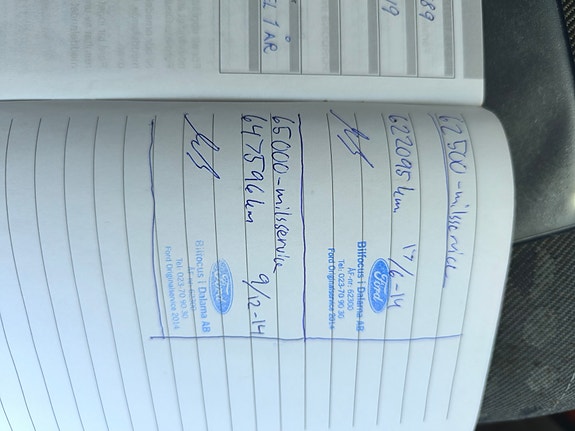 89
19
EL 1 ÅR
62500-milsservice
622095 km 17/6-14
Ford
Bilfocus i Dalarna AB
ÅF-nr: 62300
Tel: 023-70 90 30
Ford Originalservice 2014
65000-milsservice
647596 km 9/12-14
Ford
Bilfocus i Dalarna AB
Tel: 023-70 90 30
Ford Originalservice 2014